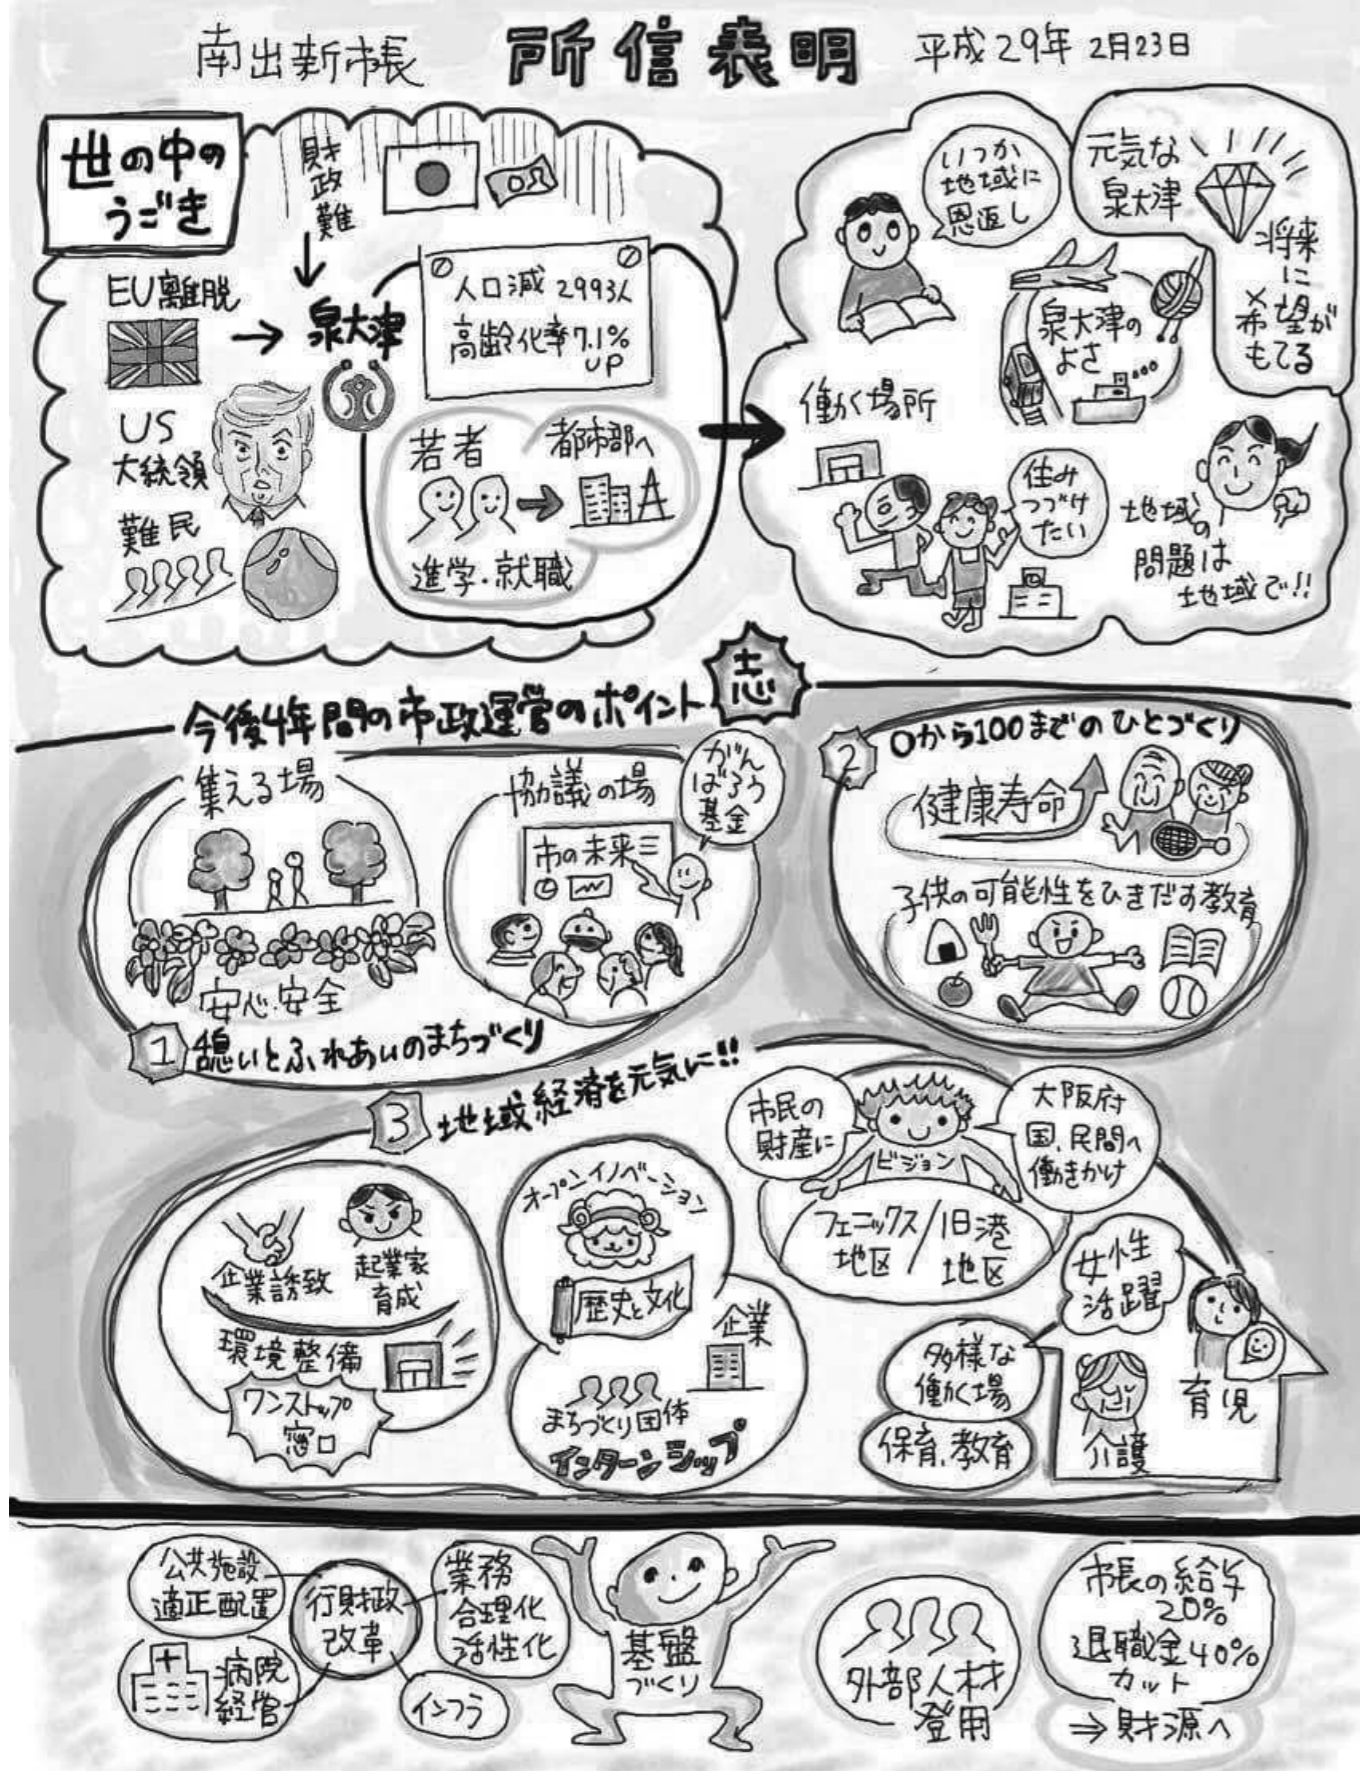 南出新市長
所信表明
平成29年 2月23日
世の中の
うごき
財政難
EU離脱
泉大津
US
大統領
難民
人口減 2993人
高齢化率7.1%
UP
若者
都市部へ
進学・就職
いつか
地域に
恩返し
元気な
泉大津
将来
に
希望が
もてる
泉大津の
よさ
働く場所
住み
つづけ
たい
地域の
問題は
地域で!!
志
今後4年間の市政運営のポイント
集える場
安心・安全
協議の場
がん
ばろう
基金
市の未来
1 憩いとふれあいのまちづくり
2 0から100までのひとづくり
健康寿命
子供の可能性をひきだす教育
3 地域経済を元気に!!
企業誘致
起業家
育成
環境整備
ワンストップ
窓口
オープンイノベーション
歴史と文化
企業
まちづくり団体
インターンシップ
市民の
財産に
ビジョン
大阪府
国、民間へ
働きかけ
フェニックス/旧港
地区/地区
女性
活躍
多様な
働く場
保育、教育
育児
介護
公共施設
適正配置
行財政
改革
業務
合理化
活性化
病院
経営
インフラ
基盤
づくり
外部人材
登用
市長の給与
20%
退職金40%
カット
⇒財源へ